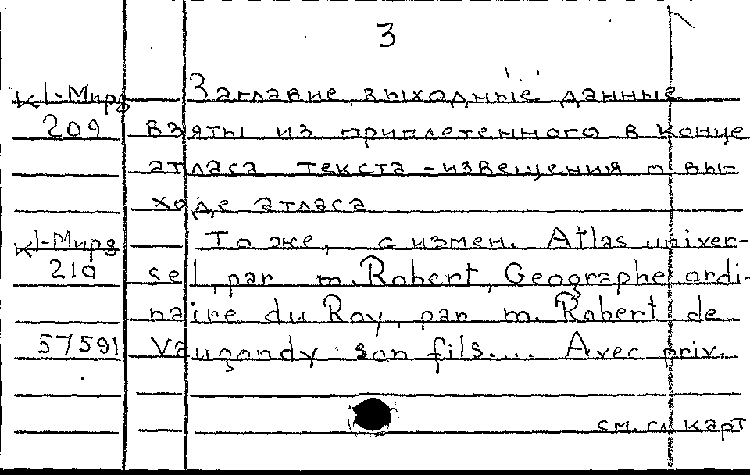 3
К1-Мира Заглавие, выходные данные
209 взяты из приплетенного в конце
атласа текста - извещения о вы-
ходе атласа
К1-Мира То же, с измен. Atlas univer-
21а sel, par m. Robert, Geographe ordi-
naire du Roy, par m. Robert de
57591 Vaugondy son fils.... Avec priv.
см. сл карт